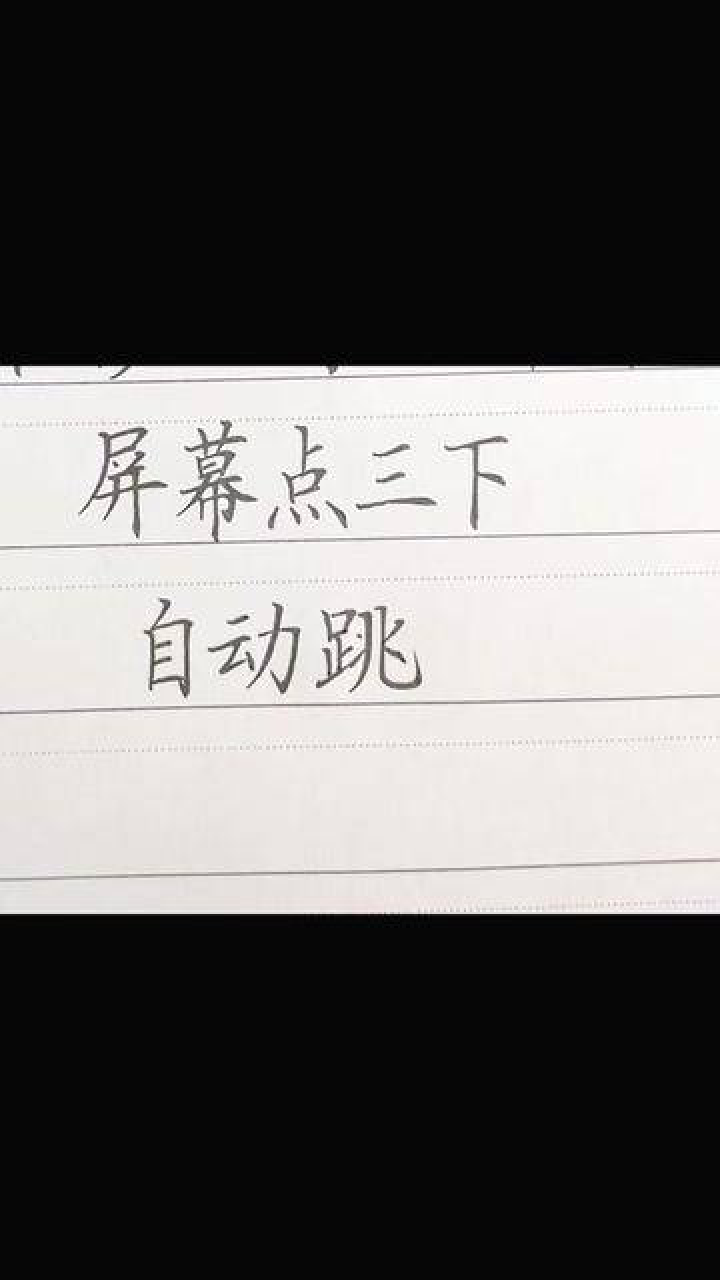 屏幕点三下
自动跳